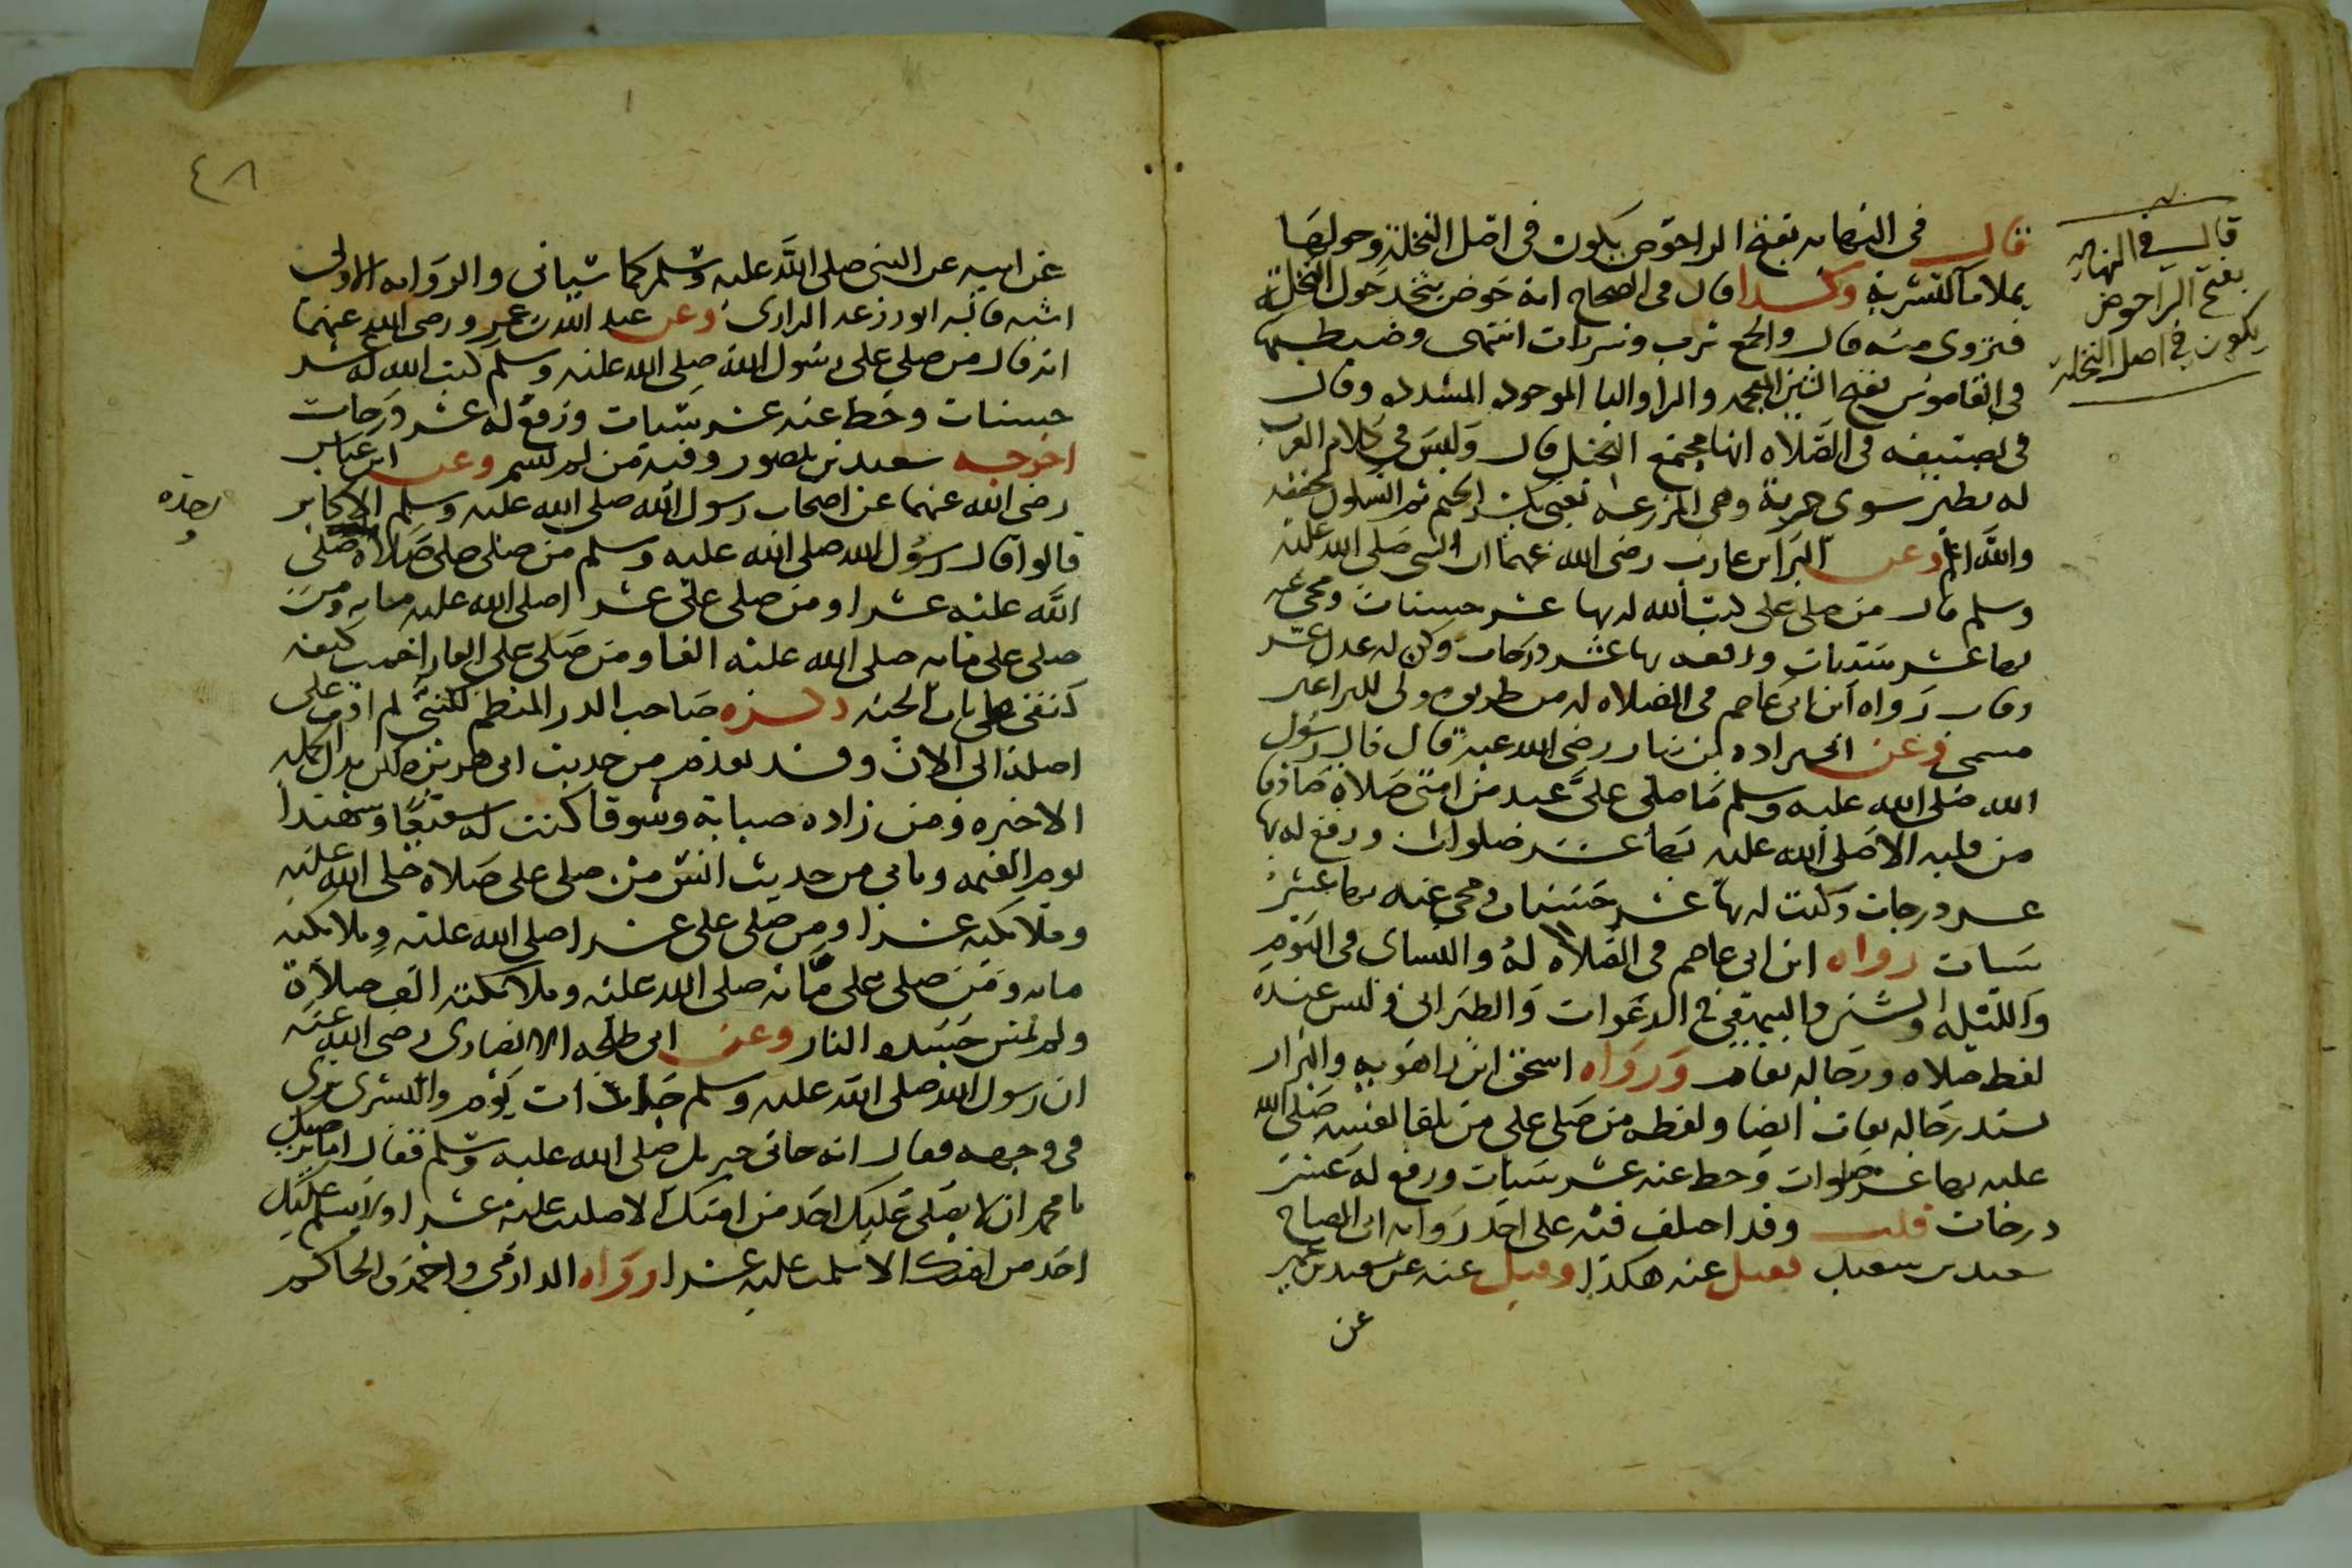 قال في النهايه بفتح الرا حوض يكون في اصل النخلة وحولها
يملا ما لتشربه وكذا قال في الصحاح انه حوض يتخذ حول النخلة
فتروى منه قال والجمع شرب وشربات انتهى وضبطها
في القاموس بفتح الشين المعجمه والرا والبا الموحده المشدده وقال
في تصنيفه في الصلاه انها مجتمع النخيل قال وليس في كلام العرب
له نظير سوى جربة وهي المزرعه
والله اعلم وعن البرا بن عازب رضى الله عنهما ان النبى صلى الله عليه
وسلم قال من صلى على كتب الله له بها عشر حسنات ومحى عنه
بها عشر سيات ورفعه بها عشر درجات وكن له عدل عشر
رقاب رواه ابن ابى عاصم في الصلاه له من طريق مولى للبرا غير
مسمى وعن ابى برده بن نيار رضى الله عنه قال قال رسول
الله صلى الله عليه وسلم ما صلى علىَّ عبد من امتى صلاة صادقا
من قلبه الا صلى الله عليه بها عشر صلوات ورفع له بها
عشر درجات وكتب له بها عشر حسنات ومحى عنه بها عشر
سيات رواه ابن ابى عاصم في الصلاه له والنساى في اليوم
والليله والسنن والبيهقي في الدعوات والطبرانى وليس عنده
لفظ صلاه ورجاله ثقات ورواه اسحق ابن راهويه والبزار
بسند رجاله ثقات ايضا ولفظه من صلى على من تلقا نفسه صلى الله
عليه بها عشر صلوات وحط عنه عشر سيات ورفع له عشر
درجات قلت وقد اختلف فيه على احد رواته ابى الصباح
سعيد بن سعيد فقيل عنه هكذا وقيل عنه عن سعيد بن عمير
عن
قال في النهايه
بفتح الرا حوض
يكون في اصل النخله
٤٨
عن ابيه عن النبى صلى الله عليه وسلم كما سيانى والروايه الاولى
اشبه قاله ابو زرعه الرازى وعن عبد الله بن عمرو رضى الله عنهما
انه قال من صلى على رسول الله صلى الله عليه وسلم كتب الله له عشر
حسنات وحط عنه عشر سيات ورفع له عشر درجات
اخرجه سعيد بن منصور وفيه من لم يسم وعن ابن عباس
رضى الله عنهما عن اصحاب رسول الله صلى الله عليه وسلم الاكابر
قالوا قال رسول الله صلى الله عليه وسلم من صلى على صلاة صلى
الله عليه عشرا ومن صلى على عشرا صلى الله عليه مايه ومن
صلى على مايه صلى الله عليه الفا ومن صلى على الفا زاحمت كتفه
كتفى على باب الجنه ذكره صاحب الدر المنظم لكننى لم اقف على
اصله الى الان وقد تقدم من حديث ابى هريره لكن بدل الجمله
الاخيره ومن زاده صبابة وشوقا كنت له شفيعا وشهيدا
يوم القيمه وياتى من حديث انس من صلى على صلاة صلى الله عليه
وملائكته عشرا ومن صلى على عشرا صلى الله عليه وملائكته
مايه ومن صلى على مايه صلى الله عليه وملائكته الف صلاة
ولم تمس جسده النار وعن ابى طلحه الانصارى رضى الله عنه
ان رسول الله صلى الله عليه وسلم جا ذات يوم والبشرى ترى
في وجهه فقال انه جانى جبريل صلى الله عليه وسلم فقال اما ترضى
يا محمد ان لا يصلى عليك احد من امتك الا صليت عليه عشرا ولا يسلم عليك
احد من امتك الا سلمت عليه عشرا رواه الدارمى واحمد والحاكم